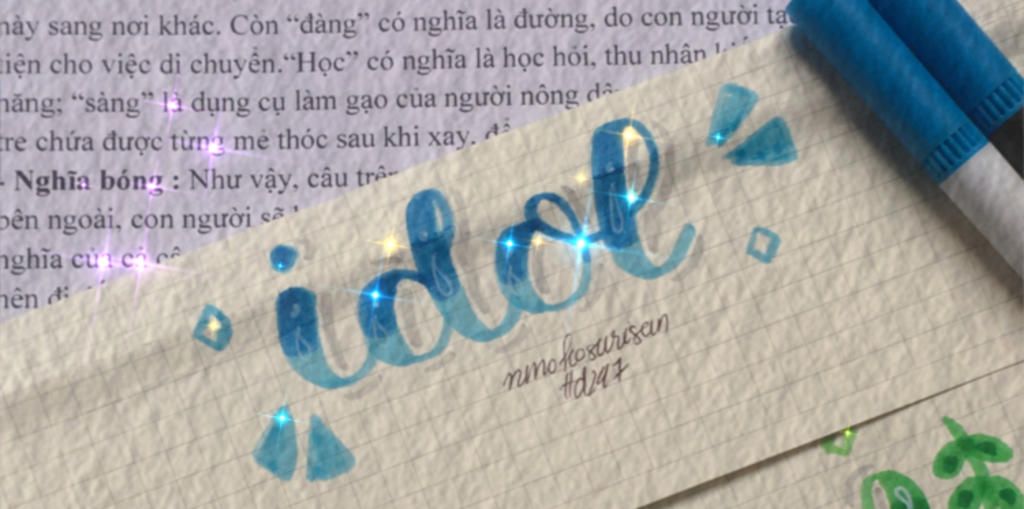 này sang nơi khác. Còn “đàng” có nghĩa là đường, do con người tạ
tiện cho việc di chuyển.“Học” có nghĩa là học hỏi, thu nhân
năng; “sàng” là dụng cụ làm gạo của người nông dâ
tre chứa được từng mẻ thóc sau khi xay.
- Nghĩa bóng : Như vậy, câu trên
bên ngoài, con người sẽ
nghĩa của câ
nên đi
idol
#d297